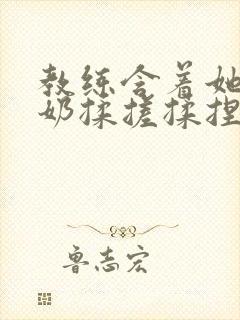 教练含着她
奶揉搓揉捏
鲁志宏